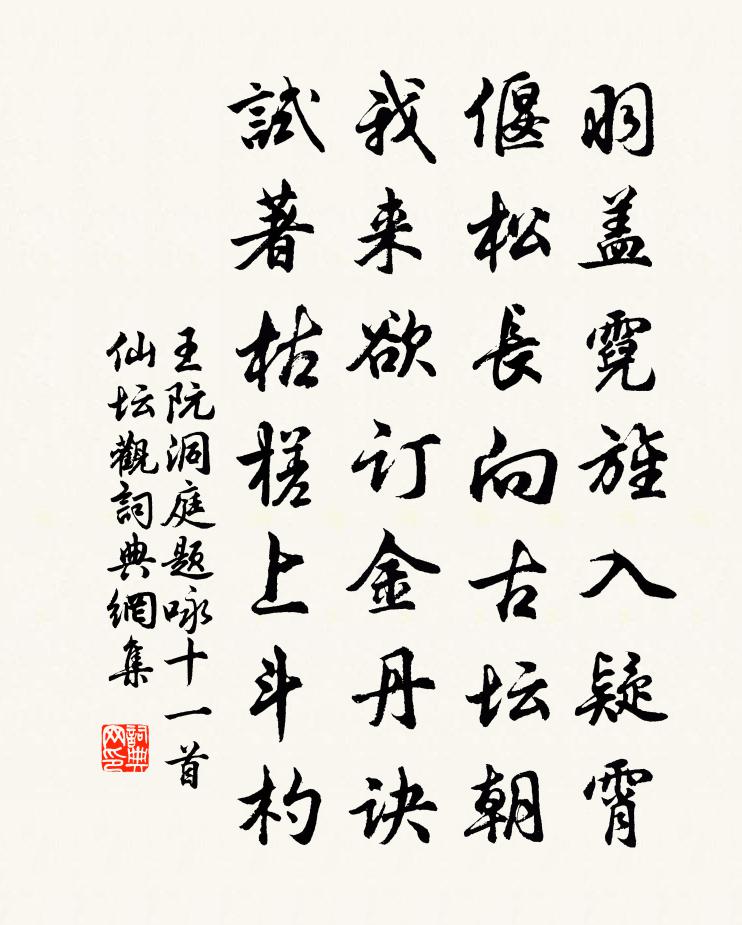 羽盖霓旌入疑霄
偃松長向古坛朝
我来欲订金丹诀
試著枯槎上斗杓
王阮洞庭题咏十一首
仙坛觀詞典網集
詞典网印